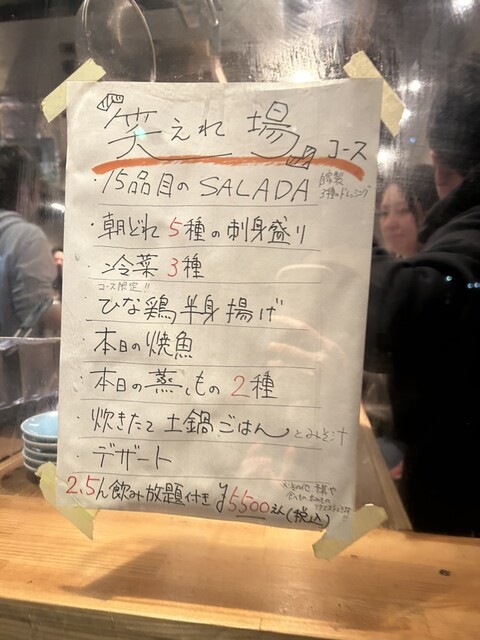 『笑えれ場』コース
・15品目のSALADA 自家製3種のドレッシング
・朝どれ5種の刺身盛り
・冷菜3種
コース限定!!
・ひな鶏半身揚げ
・本日の焼魚
・本日の蒸しもの2種
・炊きたて土鍋ごはんとみそ汁
・デザート
2.5h飲み放題付き ¥5500(税込)